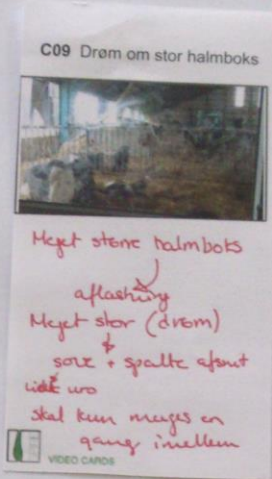 C09 Drøm om stor halmboks
Meget større halmboks
aflastning
Meget stor (drøm)
sove + spalte afsnit
uro
skal kun muges en
gang imellem
VIDEO CARDS